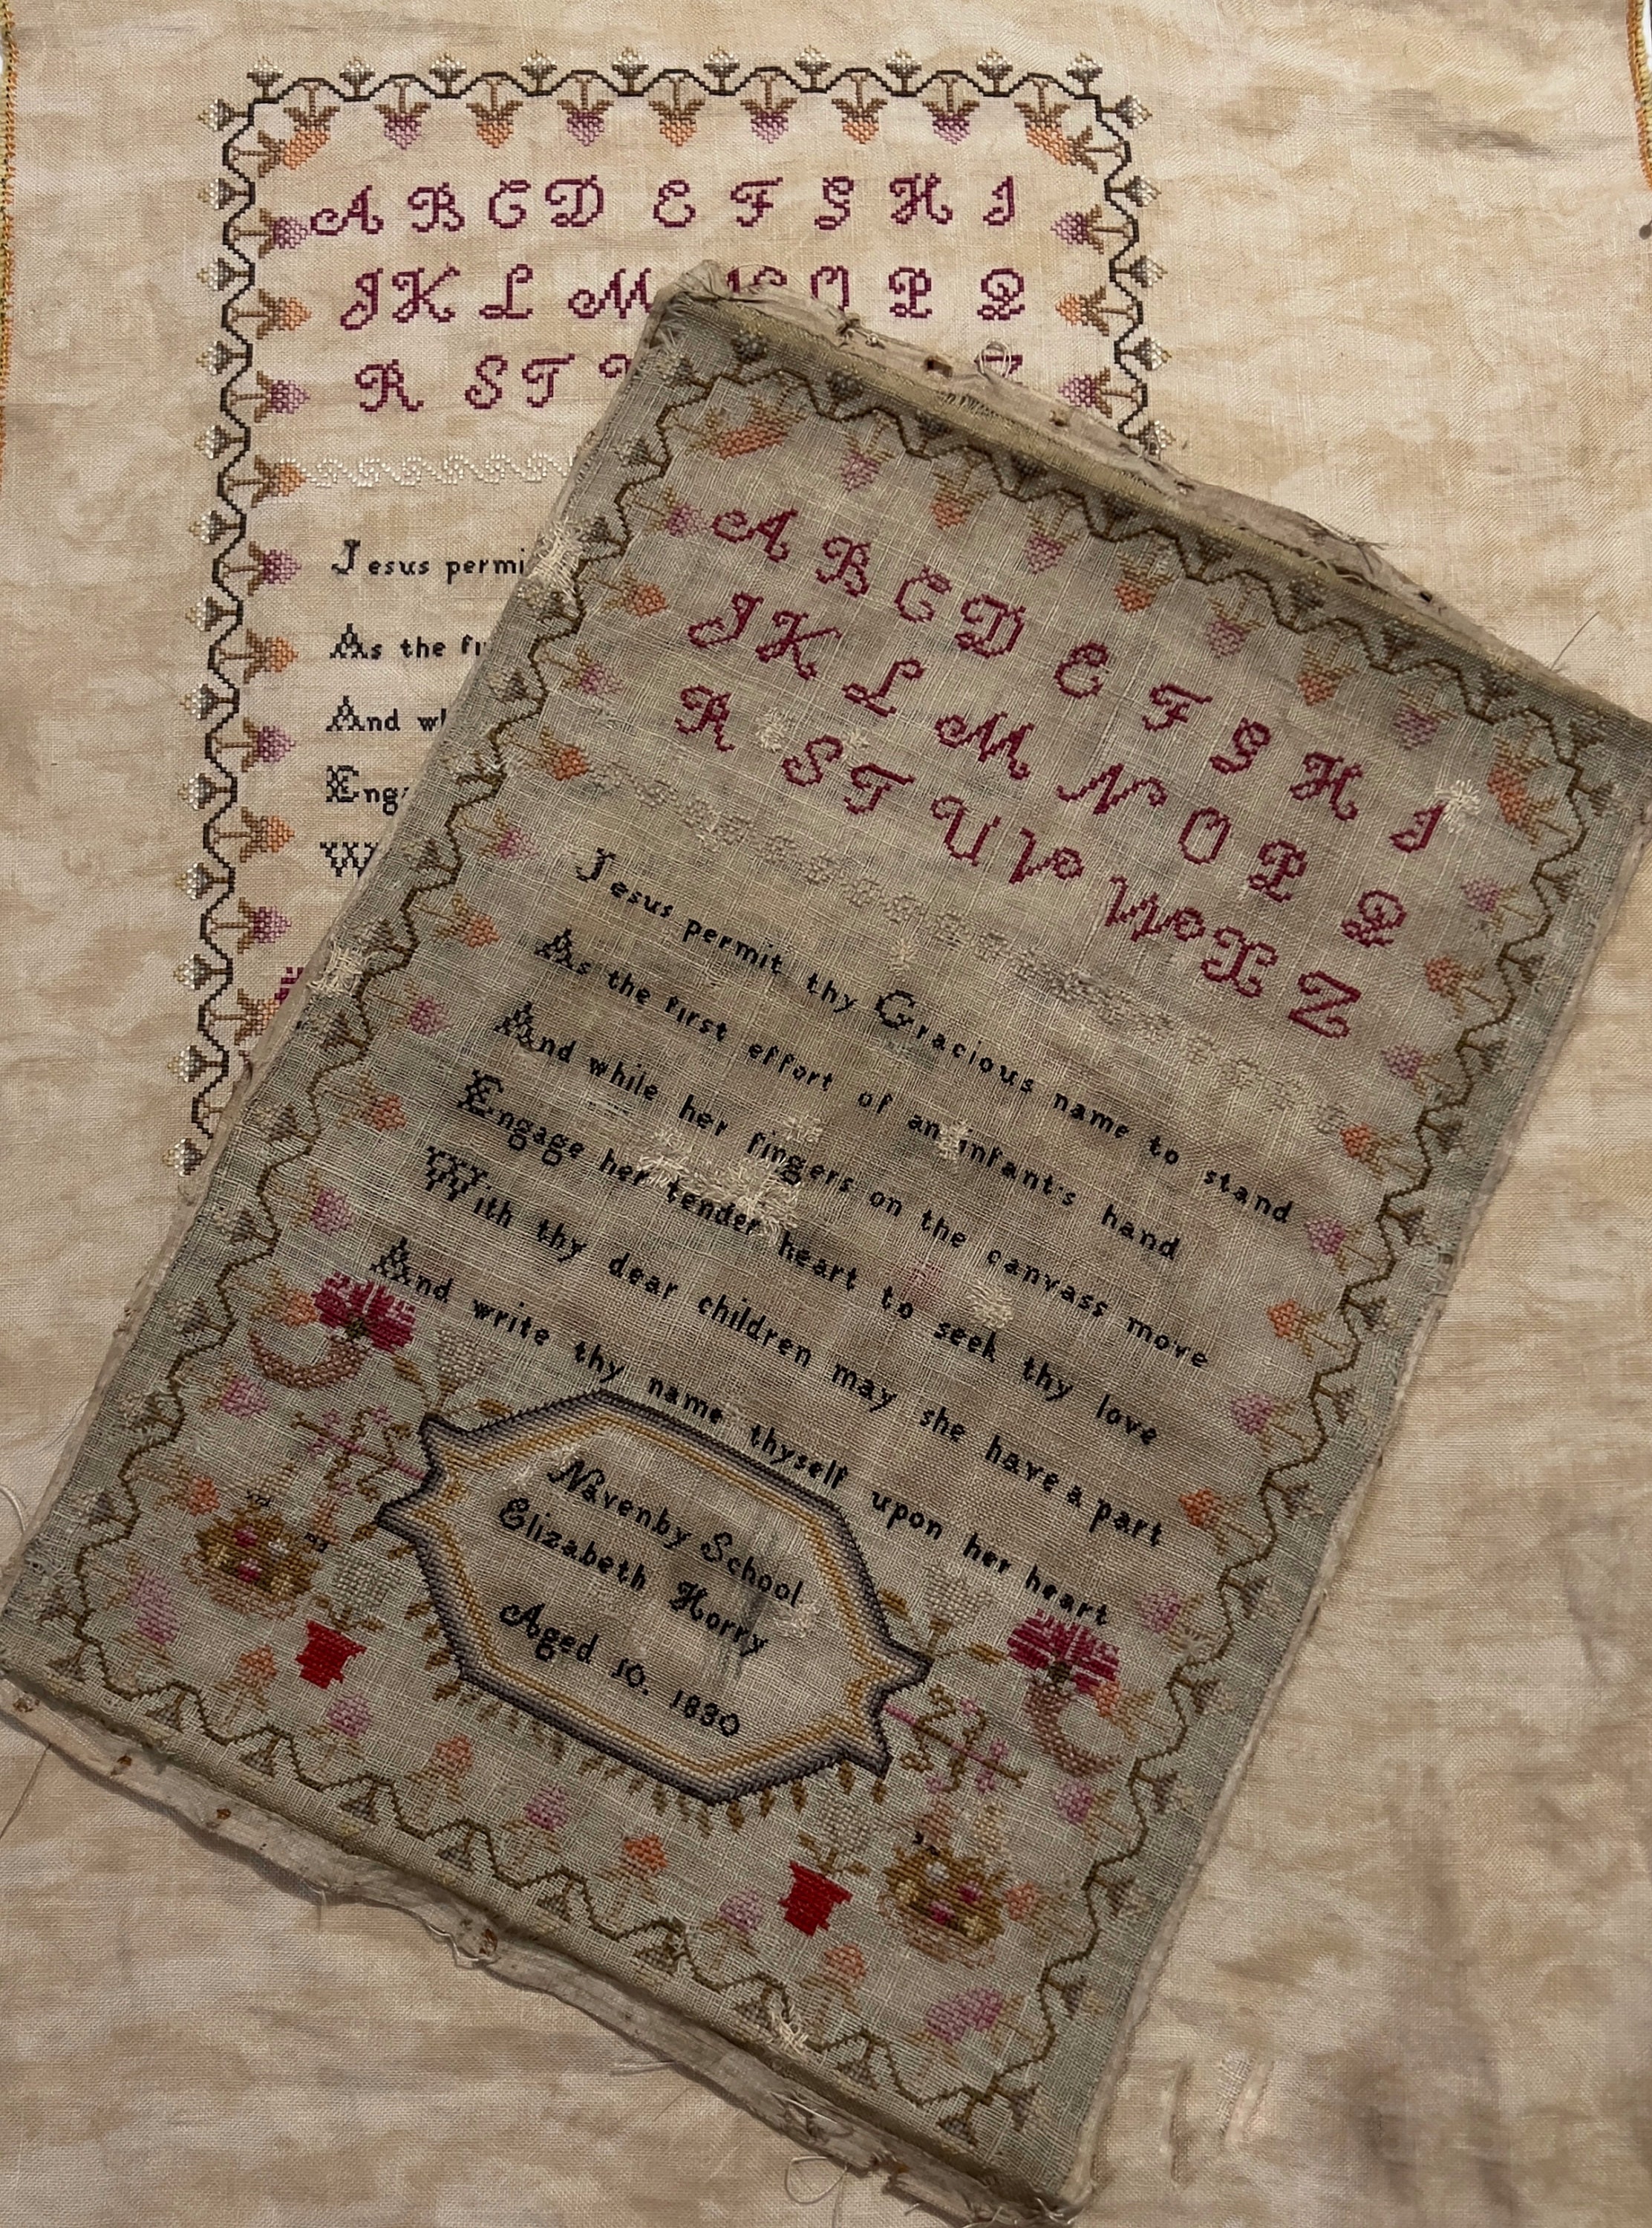 A B C D E F G H I
J K L M N O P Q
R S T
Jesus permi
As the fi
And wh
Enga
W
A B C D E F G H I
J K L M N O P Q
R S T U V W X Z
Jesus permit thy Gracious name to stand
As the first effort of an infant's hand
And while her fingers on the canvass move
Engage her tender heart to seek thy love
With thy dear children may she have a part
And write thy name thyself upon her heart
Navenby School
Elizabeth Horry
Aged 10. 1830